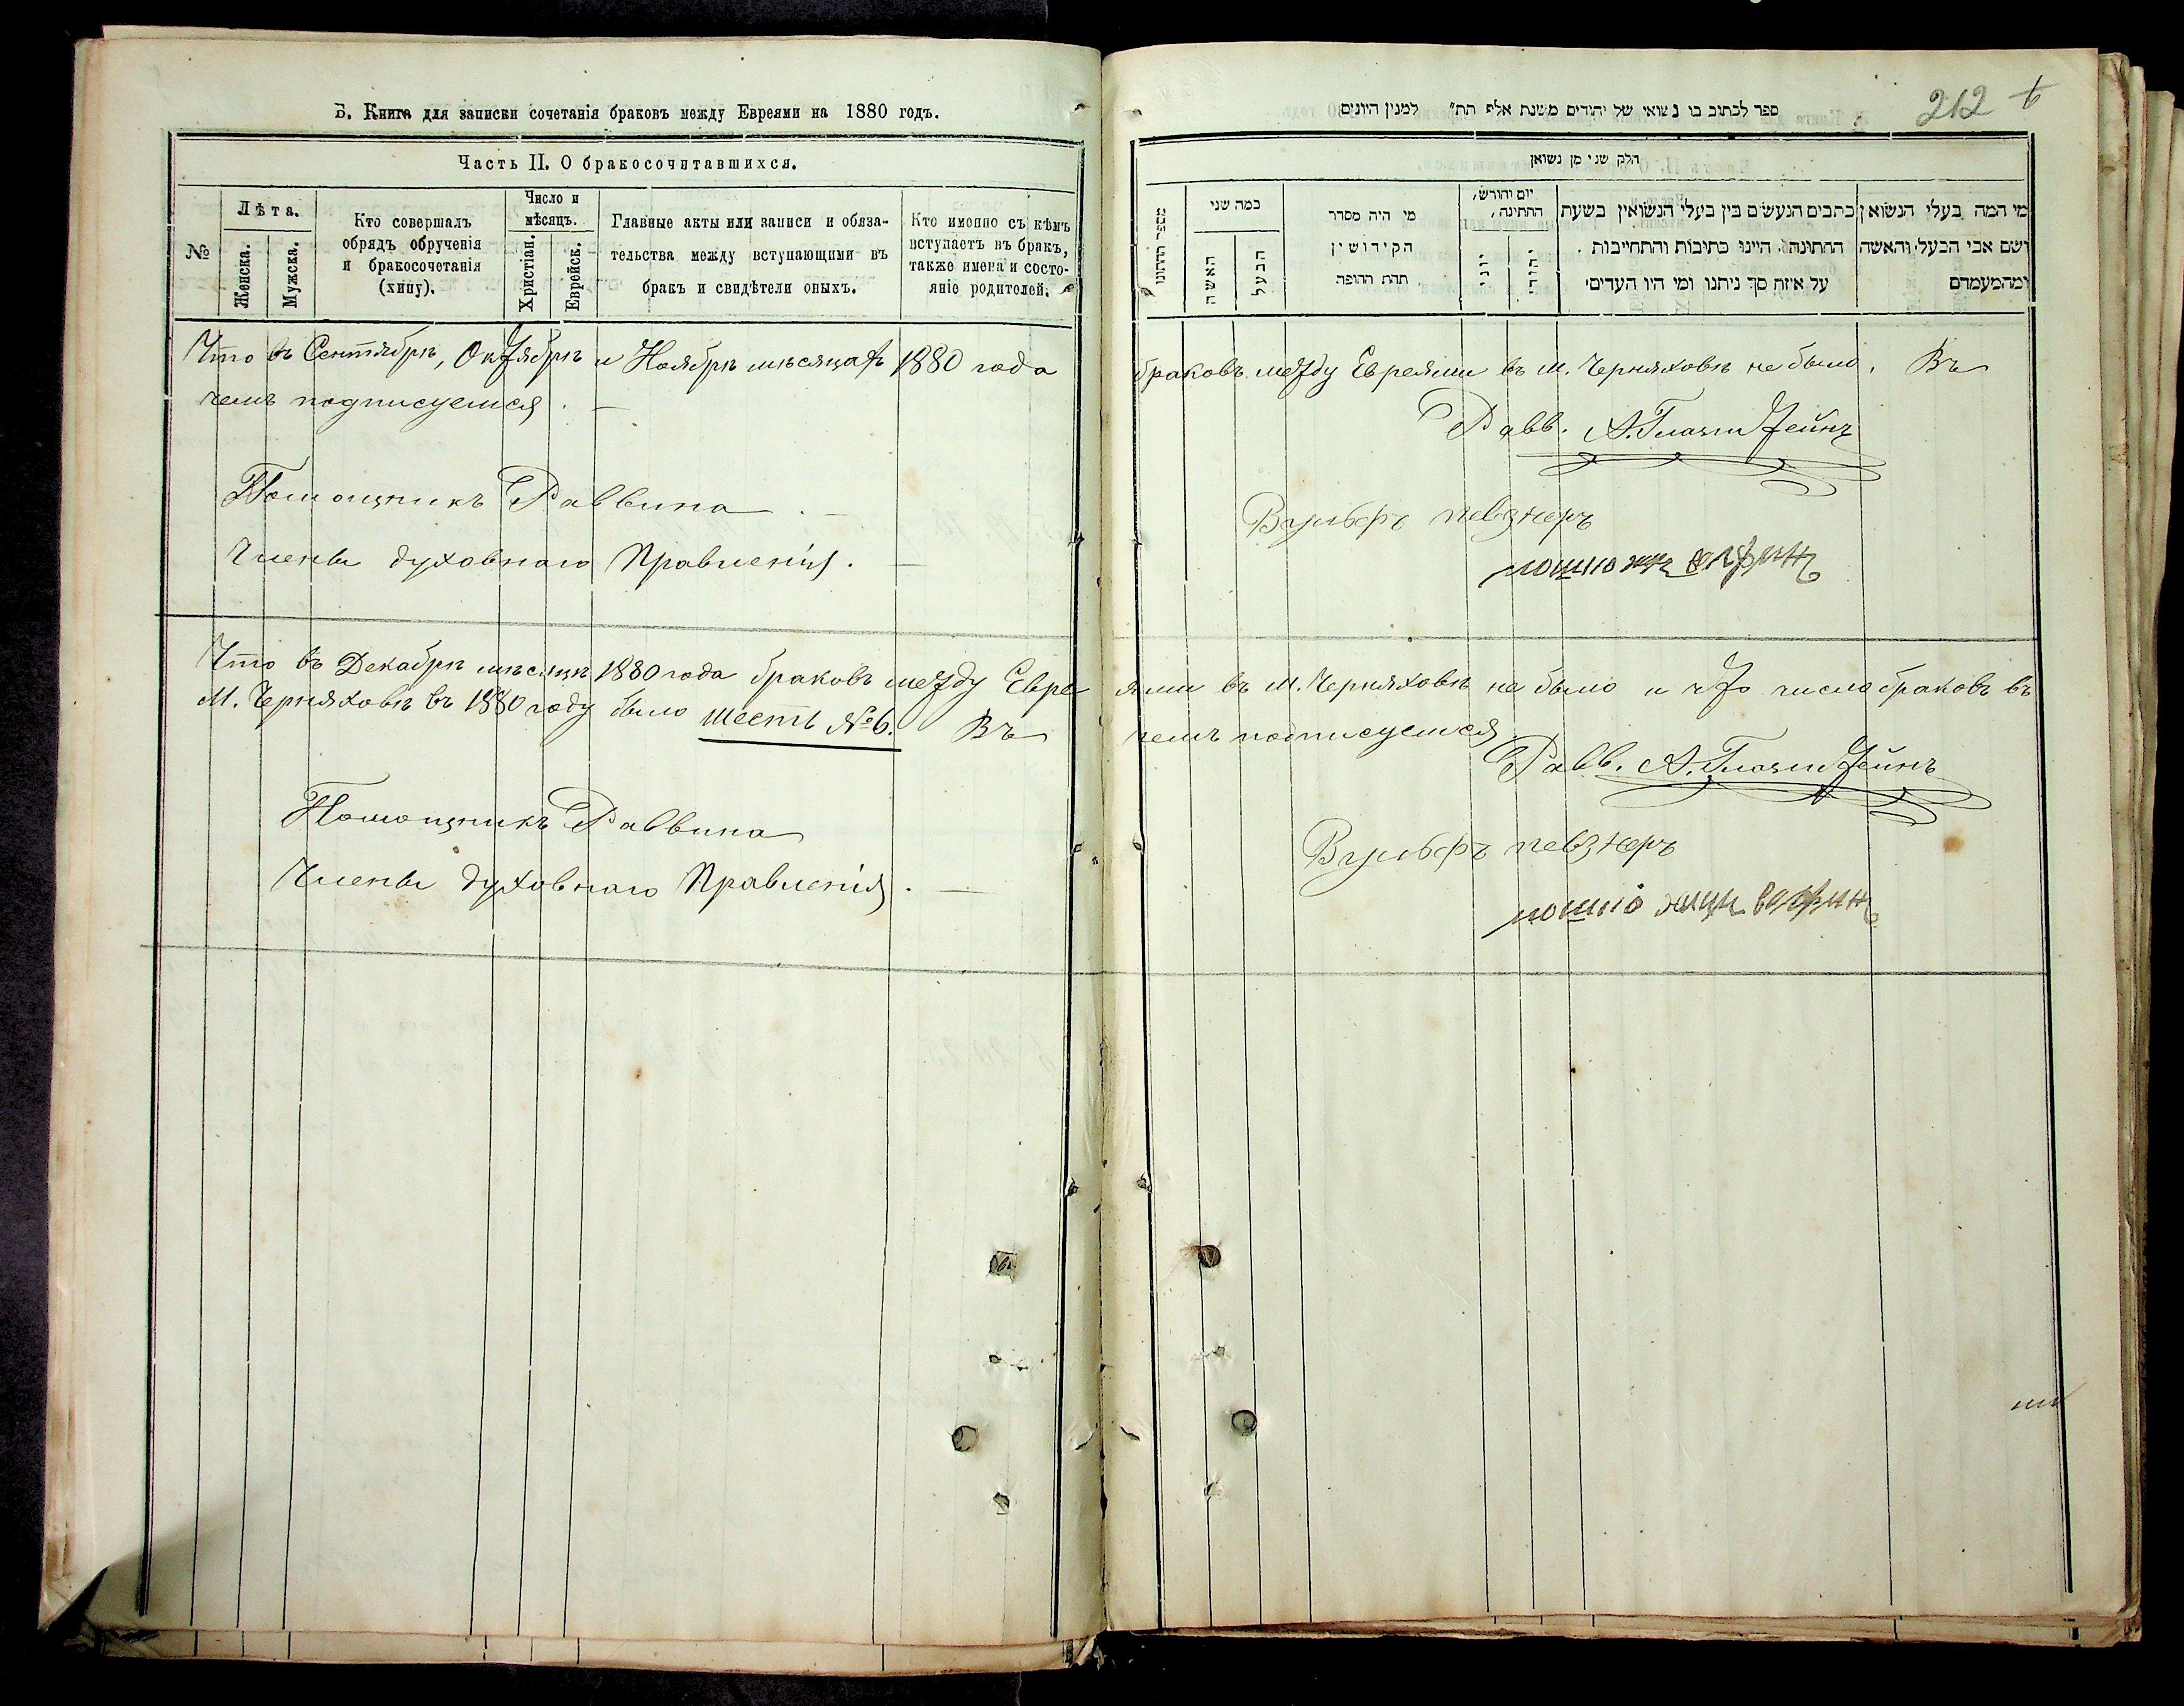 Б. Книга для записки сочетанія браковъ между Евреями на 1880 годъ.
Часть II. О бракосочитавшихся.
№
Лѣта.
Женска.
Мужска.
Кто совершалъ
обрядъ обрученія
и бракосочетанія
(хипу).
Число и
мѣсяцъ.
Христіан.
Еврейск.
Главные акты или записи и обяза-
тельства между вступающими въ
бракъ и свидѣтели оныхъ.
Кто именно съ кѣмъ
вступаетъ въ бракъ,
также имена и состо-
яніе родителей.
Что въ Сентябрѣ, Октябрѣ и Ноябрѣ мѣсяцахъ 1880 года
чемъ подписуемся.
Помощникъ Раввина
Члены духовнаго Правленія.
Что въ Декабрѣ мѣсяцѣ 1880 года браковъ между Евре
М. Черняховѣ въ 1880 году было шесть №6. Въ
Помощникъ Раввина
Члены духовнаго Правленія.
212
ספר לכתוב בו נשואי של יהודים משנת אלף הת״ למנין היונים
חלק שני מן נשואן
מי המה בעלי הנשואן
ושם אבי הבעל והאשה
ומהמעמדם
כתבים הנעשים בין בעלי הנשואין בשעת
החתונה היינו כתובות והתחייבות
על איזה סך ניתנו ומי היו העדים
יום וחורש,
החתינה,
יהודי
יוני
מי היה מסדר
הקידושין
תחת החופה
כמה שני
הבעל
האשה
браковъ между Евреями въ м. Черняховѣ не было. Въ
Равв. А. Глазштейнъ
Вульфъ певзнеръ
ями въ М. Черняховѣ не было и что число браковъ въ
чемъ подписуемся
Равв. А. Глазштейнъ
Вульфъ певзнеръ